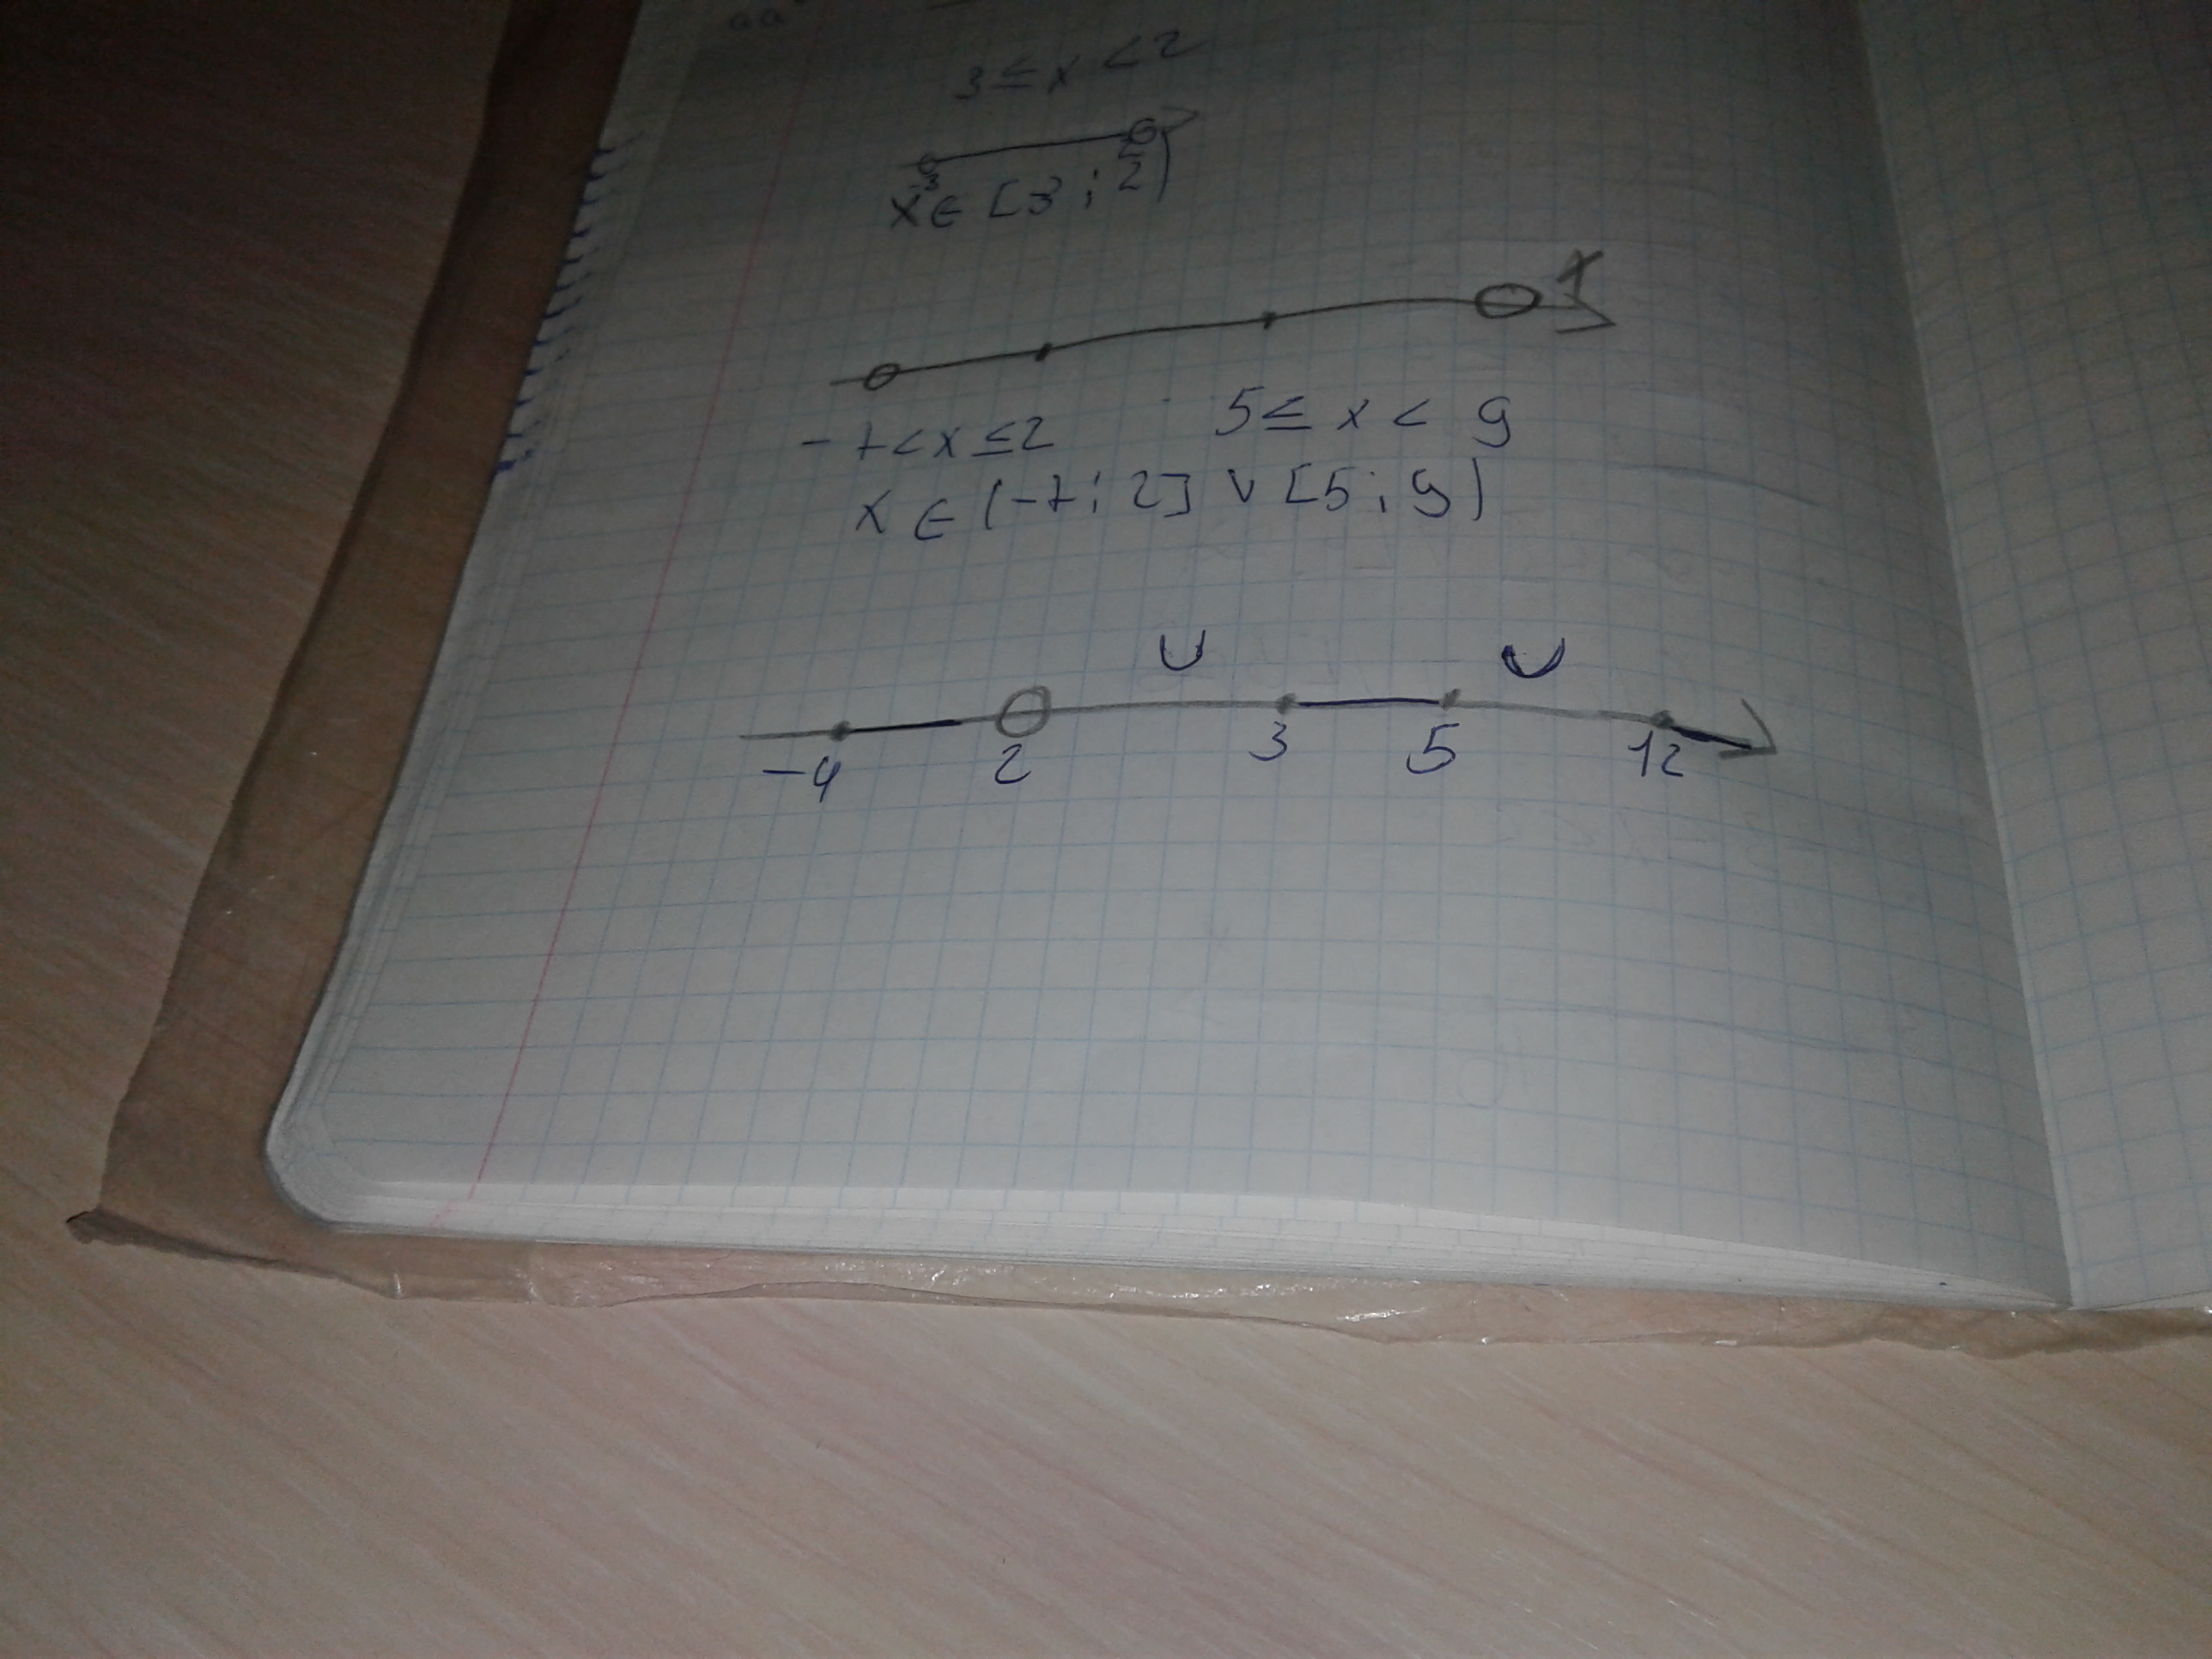 3 ≤ x < 2
3 2
x ∈ [3 ; 2)
x
-7 < x ≤ 2 5 ≤ x < 9
x ∈ (-7 ; 2] ∨ [5 ; 9)
∪ ∪
-4 2 3 5 12